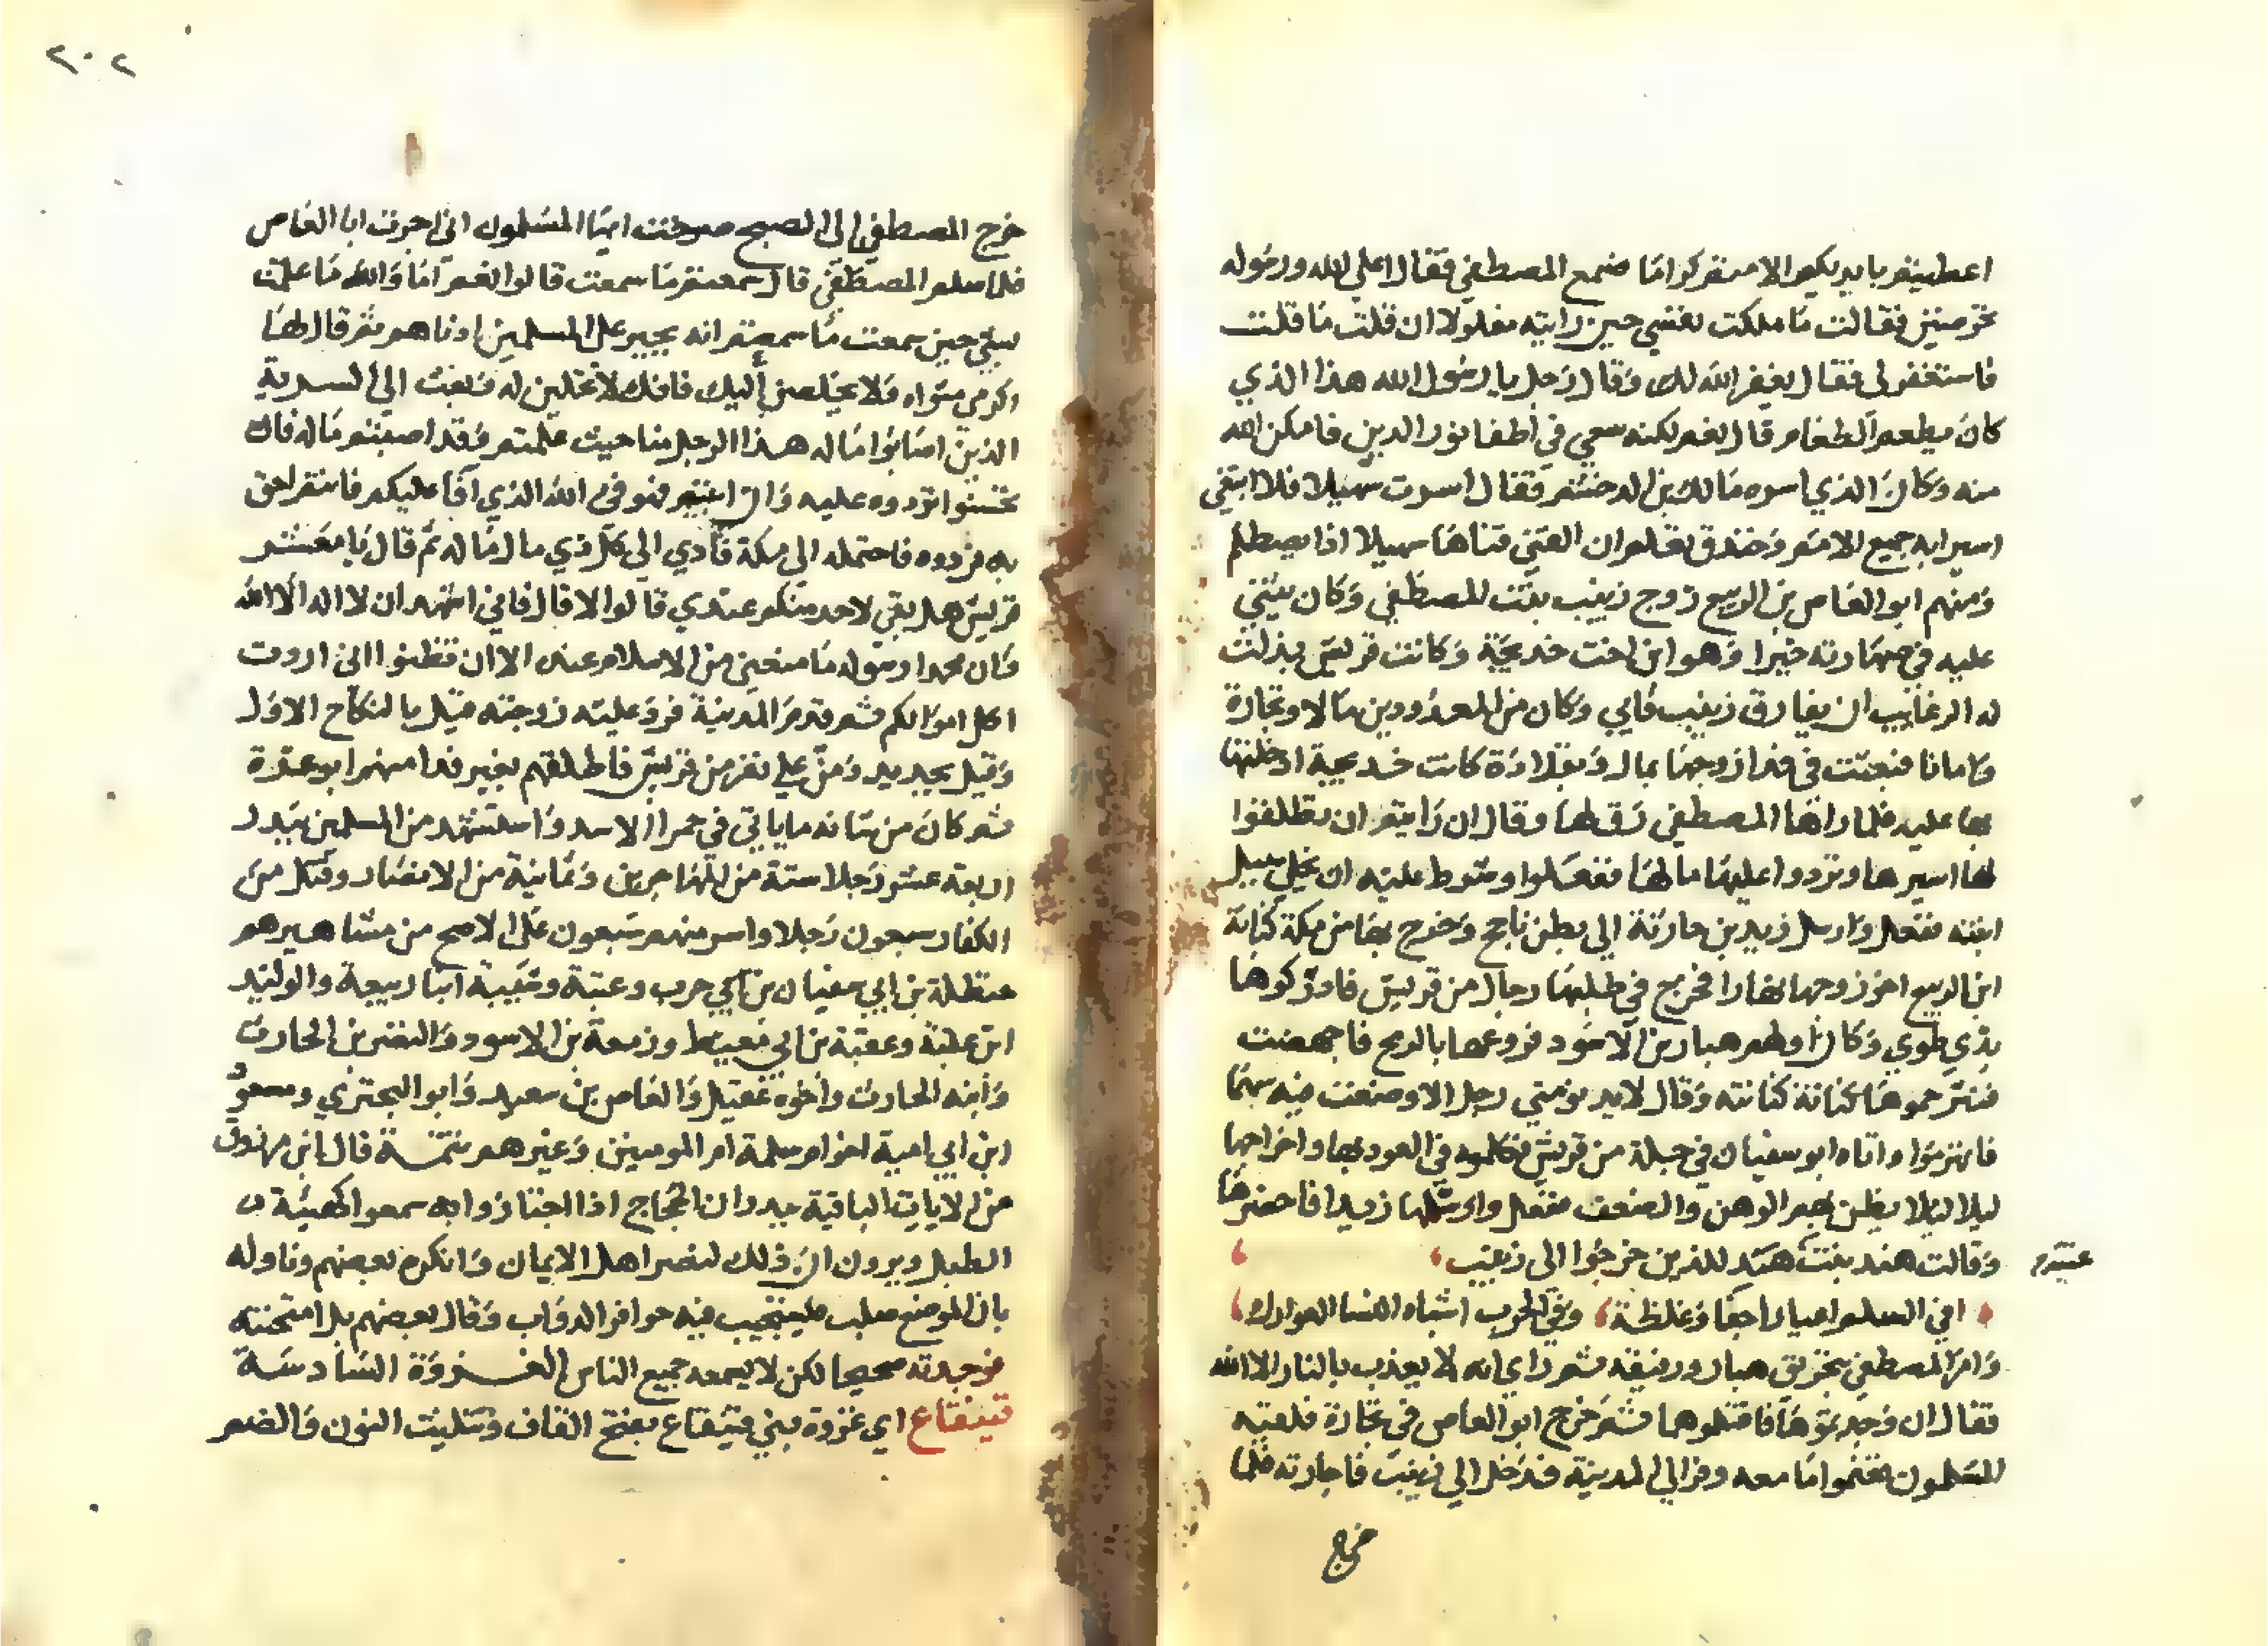 اعطيتم بايديكم الا متم كراما فسمع المصطفي فقال اعلي الله ورسوله
تحرضين فقالت ما ملكت نفسي حين رايته مغلولا ان قلت ما قلت
فاستغفر لي فقال يغفر الله لك وقال رجل يا رسول الله هذا الذي
كان يطعم الطعام قال نعم لكنه سعي في اطفا نور الدين فامكن الله
منه وكان الذي اسره مالك بن الدخشم فقال اسرت سهيلا فلا ابتغي
اسيرا به جميع الامم وخندق تعلم ان الفتي فتاها سهيلا اذا يصطلم
ومنهم ابو العاص بن الربيع زوج زينب بنت المصطفي وكان يثني
عليه في صهارته خيرا وهو ابن اخت خديجة وكانت قريش بذلت
له الرغايب ان يفارق زينب فابي وكان من المعدودين مالا وتجارة
وامانا فبعثت في فدا زوجها بمال وبقلادة كانت خديجة ادخلتها
بها عليه فلما راها المصطفي رق لها وقال ان رايتم ان تطلقوا
لها اسيرها وتردوا عليها مالها ففعلوا وشرط عليه ان يخلي سبيل
ابنته ففعل وارسل زيد بن حارثة الي بطن ناجح وخرج بها من مكة كنانة
ابن الربيع اخو زوجها نهارا فخرج في طلبها رجال من قريش فادركوها
بذي طوي وكان اولهم هبار بن الاسود فروعها بالرمح فاجهضت
فنثر حموها كنانة كنانته وقال لا يدنو مني رجل الا وضعت فيه سهما
فانهزموا واتاه ابو سفيان في جملة من قريش فكلموه في العود بها واخراجها
ليلا ليلا يظن بهم الوهن والضعف ففعل وارسلها زيدا فاحضرها
وقالت هند بنت عتبة للذين خرجوا الي زينب
افي السلم اعيارا جفا وغلظة وفي الحرب اشباه النسا العوارك
وامر المصطفي بتحريق هبار ورفيقه ثم راي انه لا يعذب بالنار الا الله
فقال ان وجدتموها فاقتلوهما ثم خرج ابو العاص في تجارة فلقيه
المسلمون فغنموا ما معه وفر الي المدينة فدخل الي زينب فاجارته فلما
خرج
٢٠٢
خرج المصطفي الي الصبح صرخت ايها المسلمون اني اجرت ابا العاص
فلما سلم المصطفي قال سمعتم ما سمعت قالوا نعم اما والله ما علمت
بشي حين سمعت ما سمعتم انه يجير علي المسلمين ادناهم ثم قال لها
اكرمي مثواه ولا يخلص اليك فانك لا تحلين له وبعث الي السرية
الذين اصابوا ماله هذا الرجل منا حيث علمتم وقد اصبتم ماله فان
تحسنوا تردوه عليه وان ابيتم فهو في الله الذي افا عليكم فانتم احق
به فردوه فاحتمله الي مكة فادي الي كل ذي مال ماله ثم قال يا معشر
قريش هل بقي لاحد منكم عندي قالوا لا قال فاني اشهد ان لا اله الا الله
وان محمدا رسوله ما منعني من الاسلام عنده الا ان تظنوا اني اردت
اكل اموالكم ثم قدم المدينة فرد عليه زوجته قيل بالنكاح الاول
وقيل بجديد ومن علي نفر من قريش فاطلقهم بغير فدا منهم ابو عزة
ثم كان من شانه ما ياتي في حمرا الاسد واستشهد من المسلمين ببدر
اربعة عشر رجلا ستة من المهاجرين وثمانية من الانصار وقتل من
الكفار سبعون رجلا واسر منهم سبعون علي الاصح من مشاهيرهم
حنظلة بن ابي سفيان بن حرب وعتبة وشيبة ابنا ربيعة والوليد
ابن عتبة وعقبة بن ابي معيط وزمعة بن الاسود والنضر بن الحارث
وابنه الحارث واخوه عقيل والعاص بن سعيد وابو البحتري ومسعود
ابن ابي امية اخو ام سلمة ام المومنين وغيرهم تتمة قال ابن مرزوق
من الايات الباقية ببدر ان الحجاج اذا اجتازوا به سمعوا كهيئة
الطبل ويرون ان ذلك لنصر اهل الايمان وانكره بعضهم وتاوله
بان الموضع صلب فيجيب فيه حوافر الدواب وقال بعضهم بل امتحنته
فوجدته صحيحا لكن لا يسمعه جميع الناس الغزوة السادسة
قينقاع اي غزوة بني قينقاع بفتح القاف وتثليث النون والضم